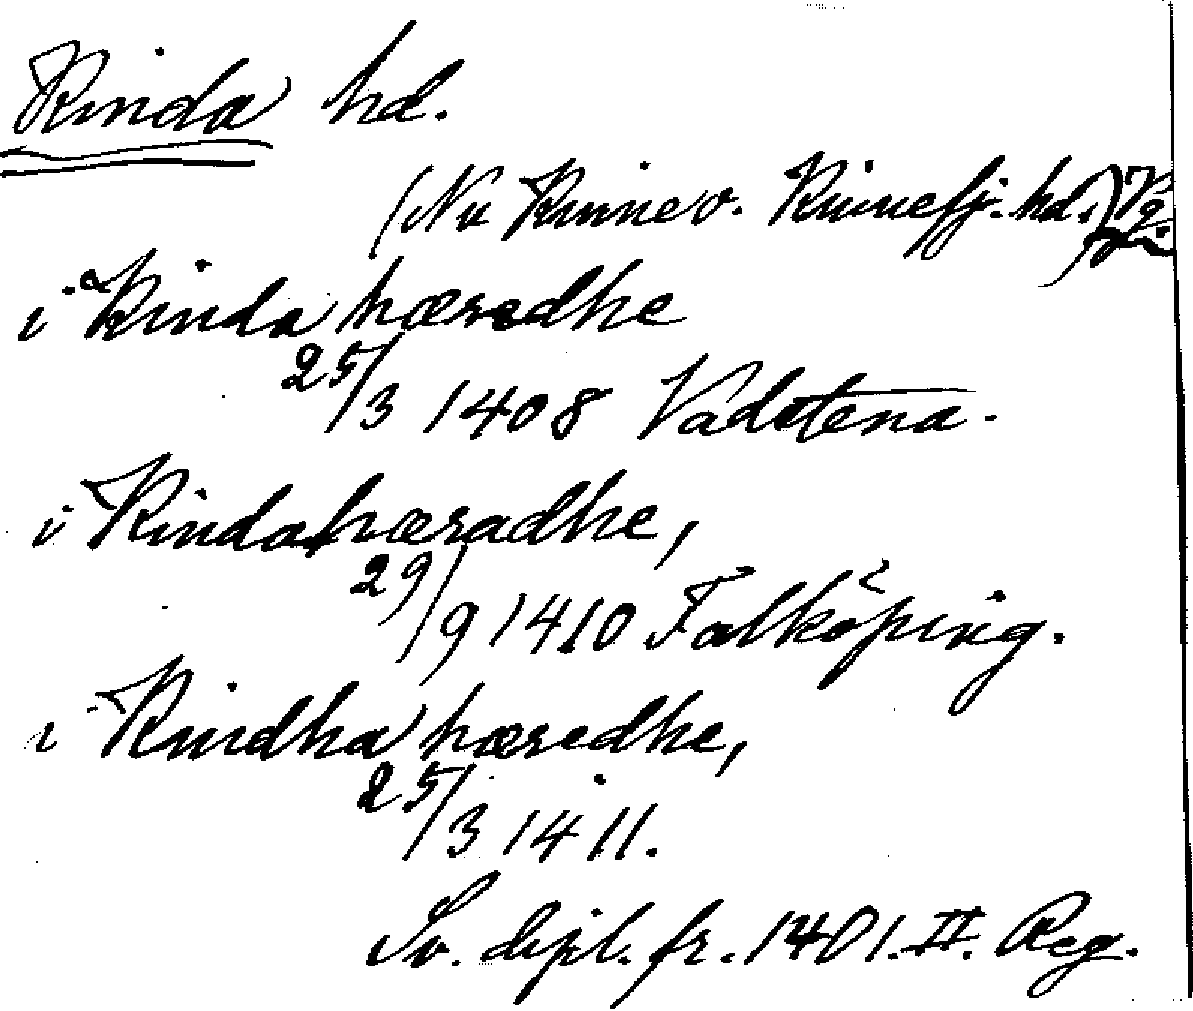 Kinda hd.
(Nu Kinne o. Kinnefj. hd.) Vg.
i Kinda hæredhe
25/3 1408 Vadstena.
i Kindahæradhe,
29/9 1410 Falköping.
i Kindha hæredhe,
25/3 1411.
Sv. dipl. fr. 1401. II. Reg.